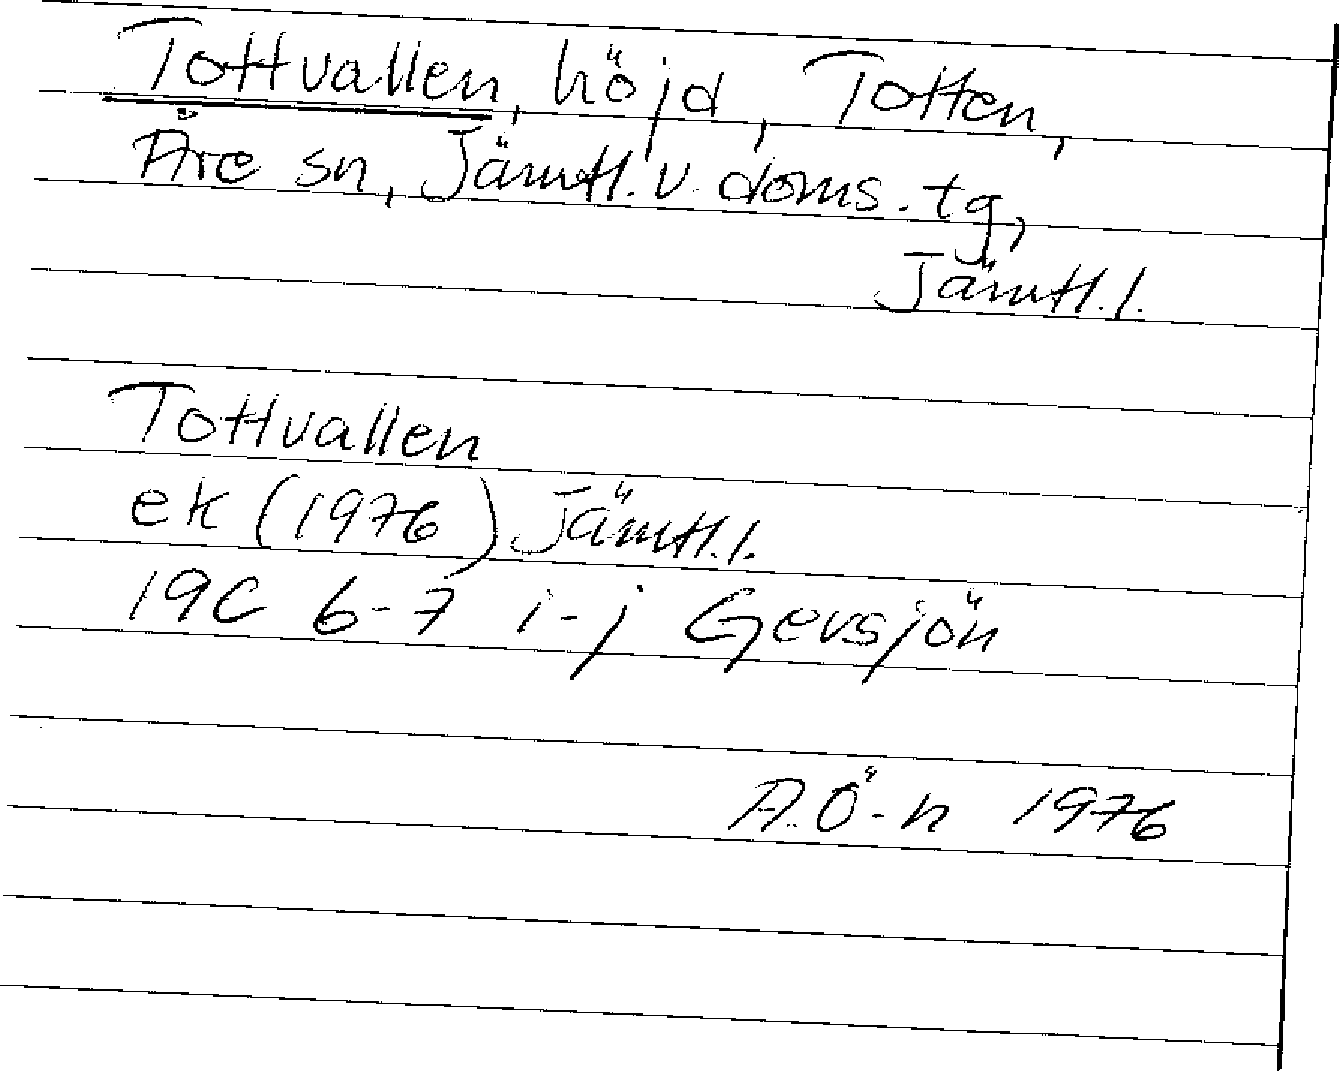 Tottvallen, höjd, Totten,
Åre sn, Jämtl. v. doms. tg,
Jämtl. l.
Tottvallen
ek (1976) Jämtl. l.
19C 6-7 i-j Gevsjön
A. Ö-n 1976